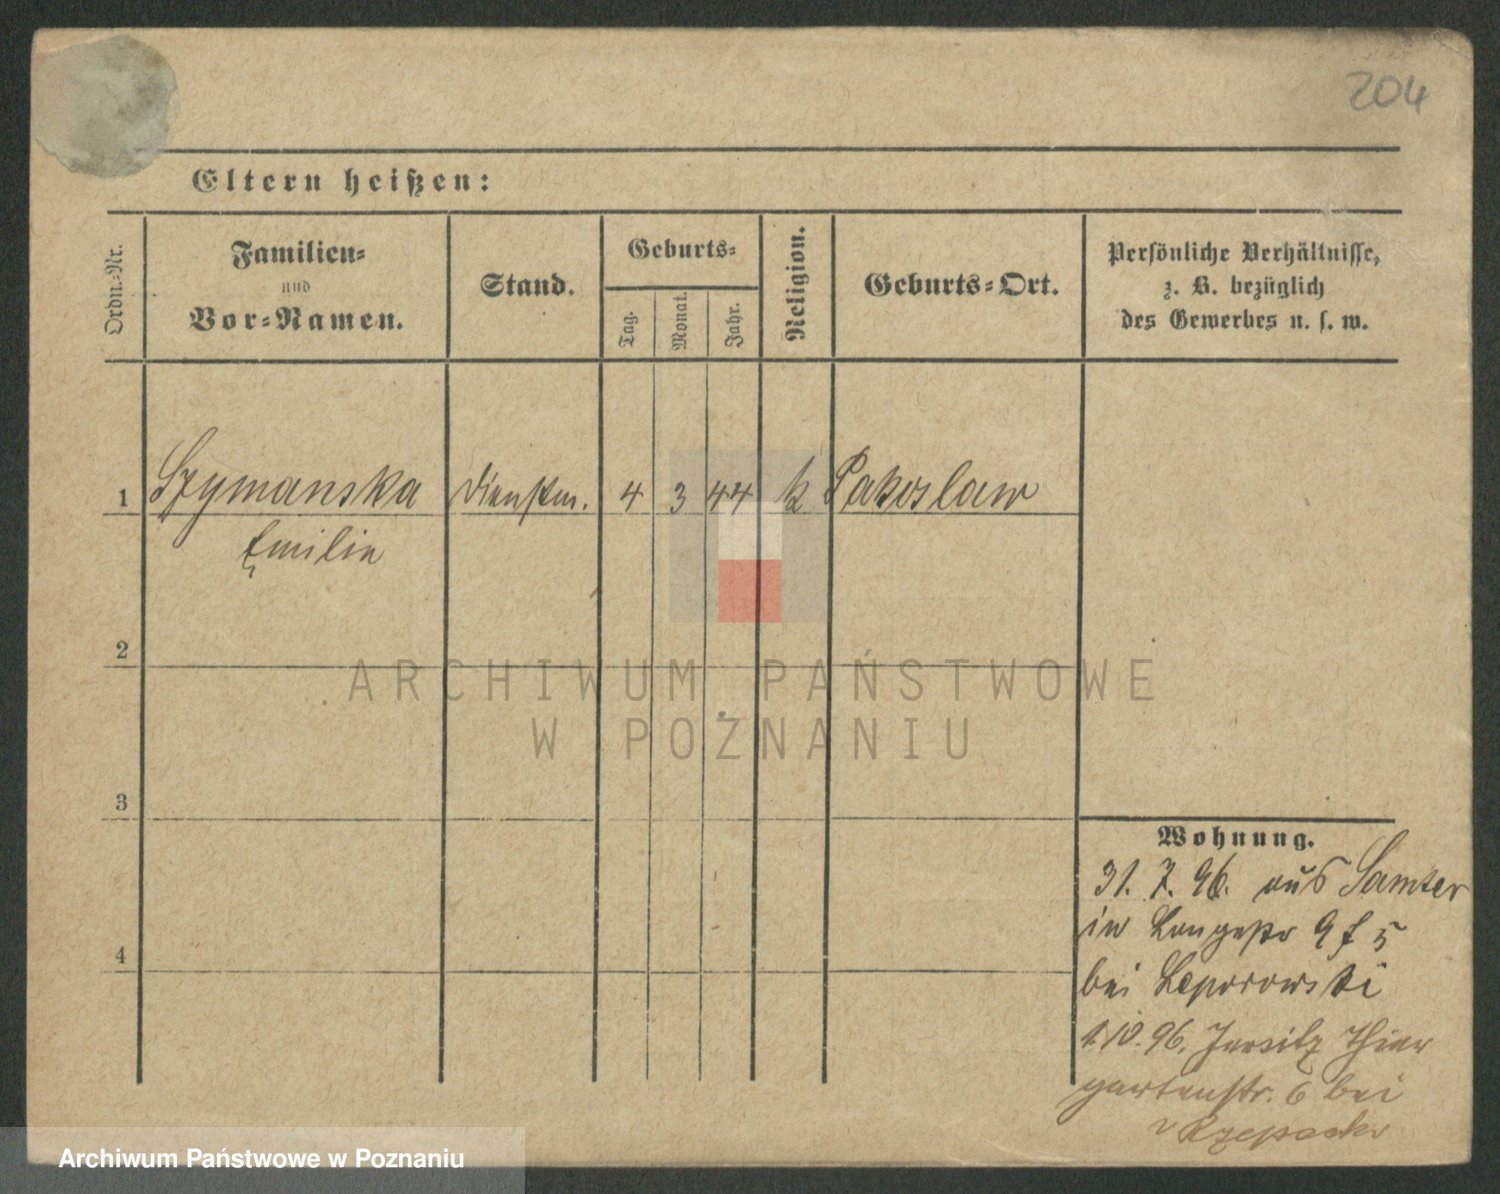 204
Eltern heißen:
Ordn.-Nr.
Familien-
und
Vor-Namen.
Stand.
Geburts-
Tag.
Monat.
Jahr.
Religion.
Geburts-Ort.
Persönliche Verhältnisse,
z. B. bezüglich
des Gewerbes u. s. w.
1 Szymanska Dienstm. 4 3 44 k Pakoslaw
Emilie
2
3
4
ARCHIWUM PAŃSTWOWE
W POZNANIU
Wohnung.
31. 7. 96. aus Samter
in Langestr 9 f 5
bei Leporowski
1.10.96. Jersitz Thier
gartenstr. 6 bei
Archiwum Państwowe w Poznaniu